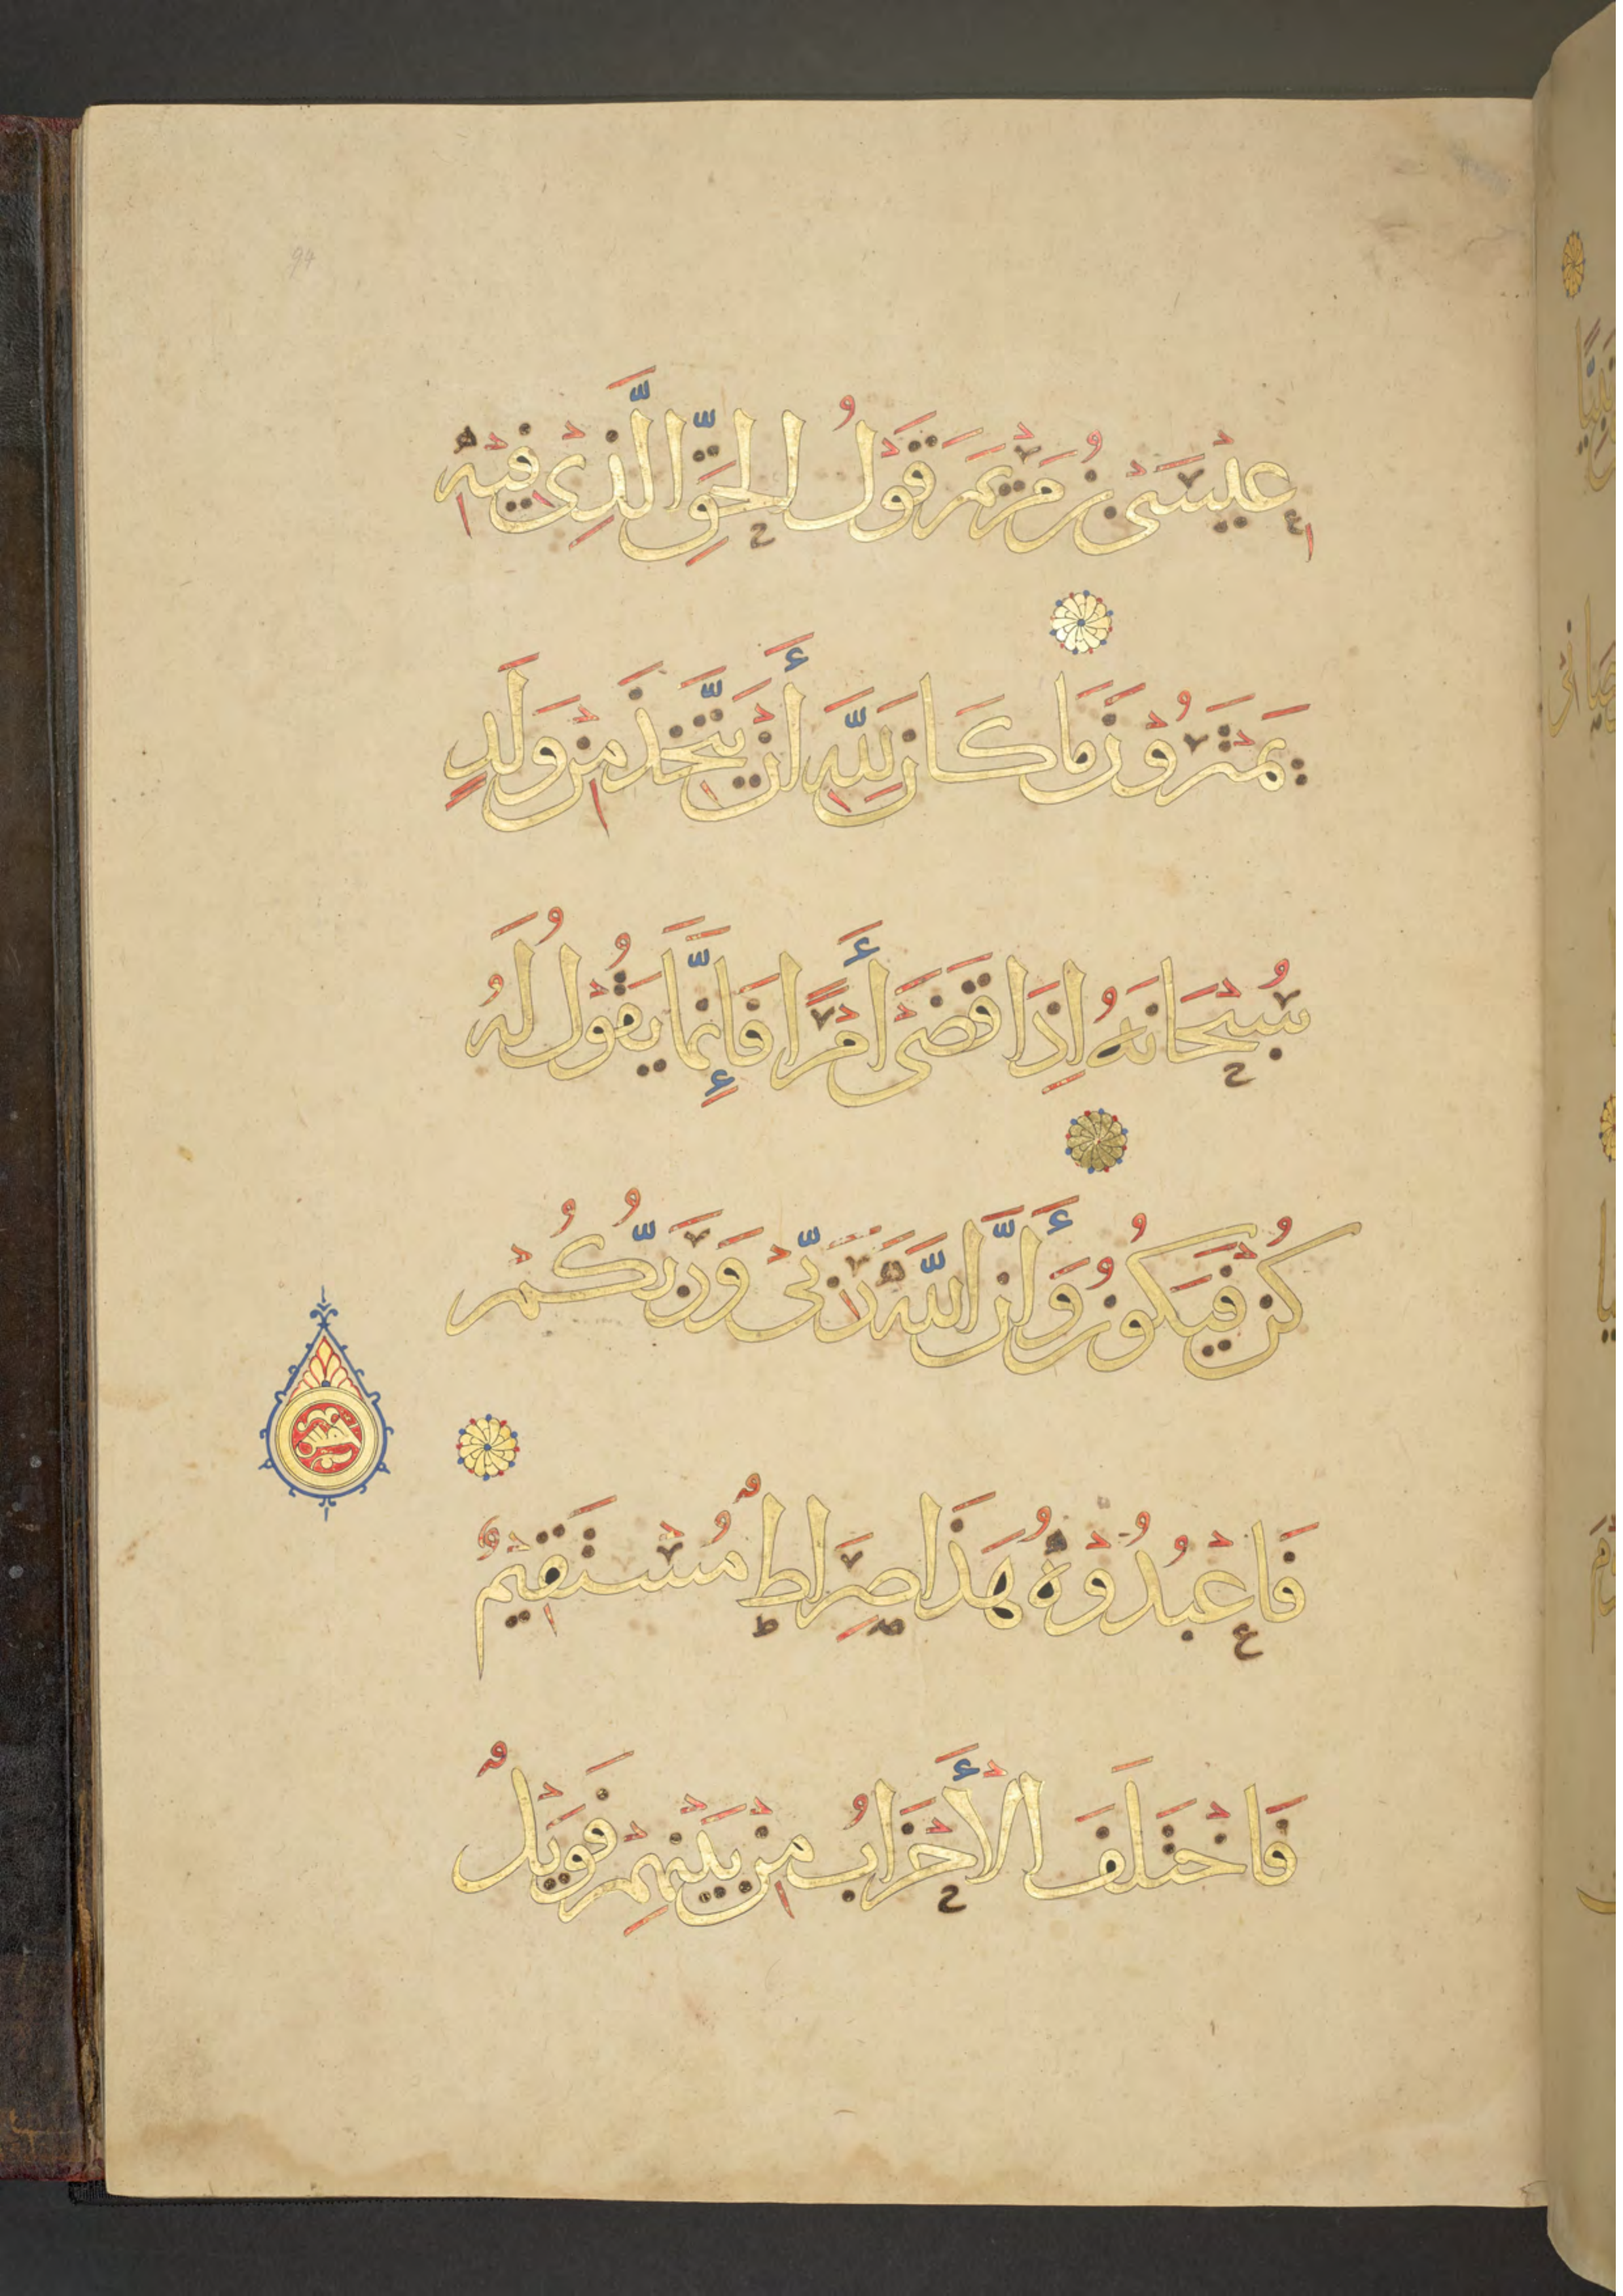 94
عِيْسَى بْنُ مَرْيَمَ قَوْلَُ الْحَقِّ الَّذِىْ فِيْهِ
يَمْتَرُوْنَ مَا كَانَ لِلَّهِ أَنْ يَتَّخِذَ مِنْ وَلَدٍ
سُبْحَانَهُ اِذَا قَضَىْ أَمْرًا فَإِنَّمَا يَقُوْلُ لَهُ
كُنْ فَيَكُوْنُ وَأَنَّ اللَّهَ رَبِّىْ وَرَبُّكُمْ
فَاعْبُدُوْهُ هَذَا صِرَاطٌ مُسْتَقِيْمٌ
فَاخْتَلَفَ الْأَحْزَابُ مِنْ بَيْنِهِمْ فَوَيْلٌ